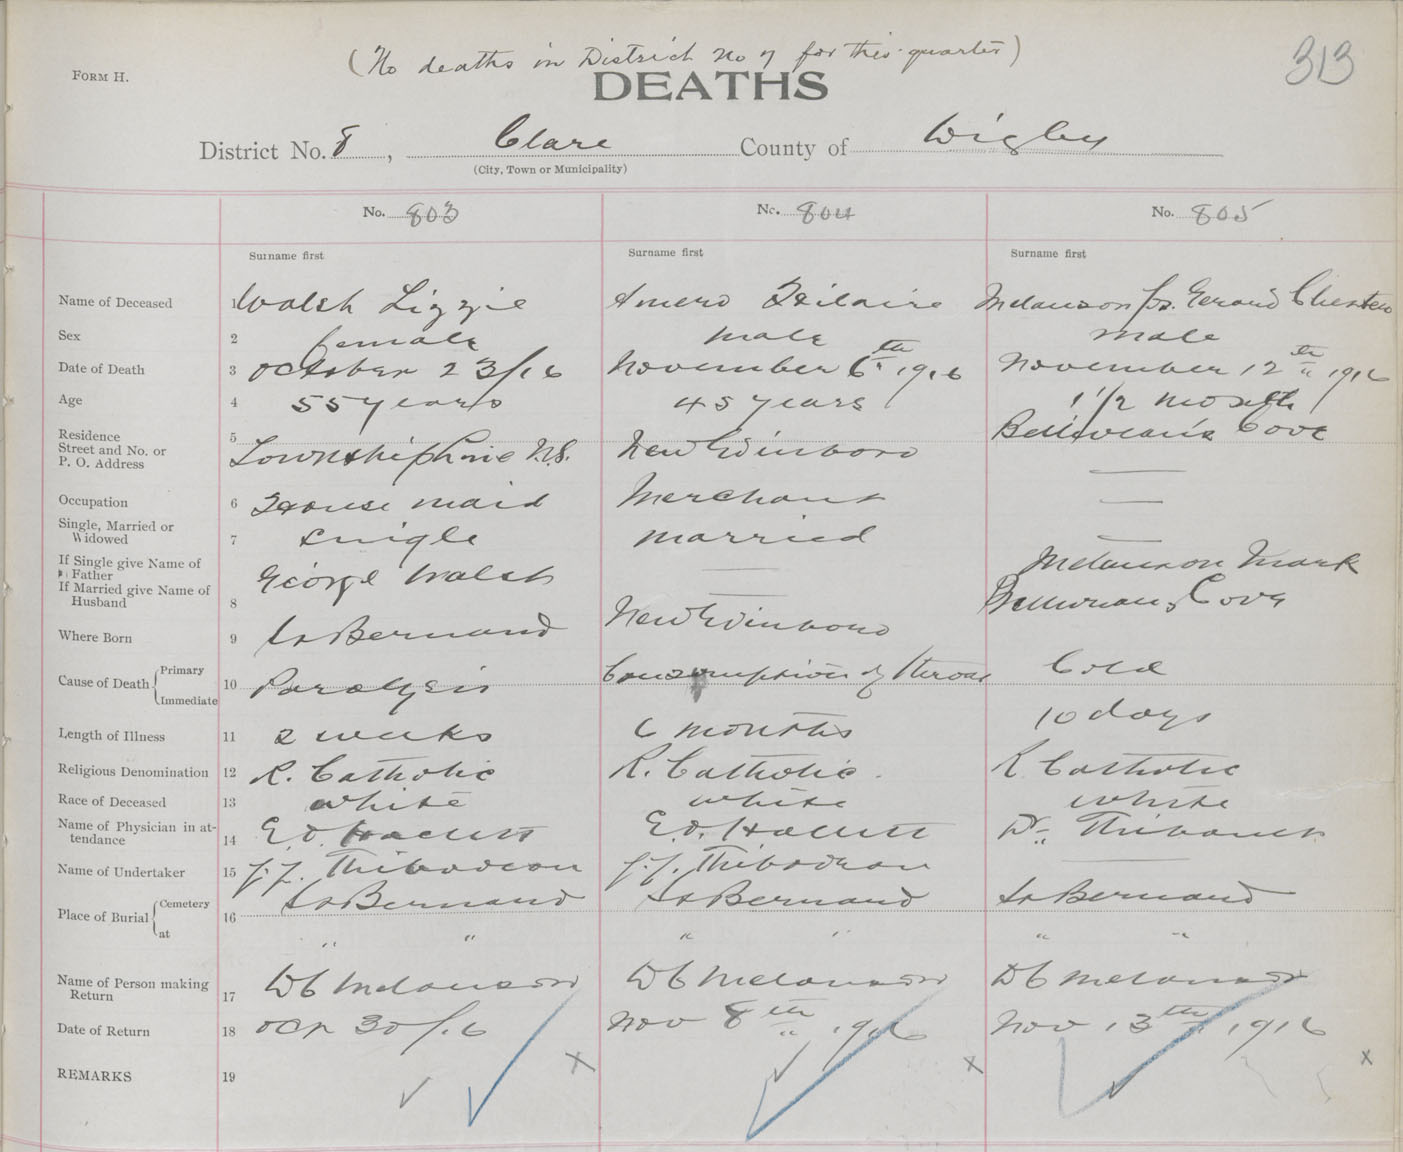 (No deaths in District No 7 for this quarter)
313
FORM H.
DEATHS
District No. 8, Clare County of Digby
(City, Town or Municipality)
No. 803 No. 804 No. 805
Surname first Surname first Surname first
Name of Deceased 1 Walsh Lizzie Amero Hilaire Melanson Jos. Gerand Chester
Sex 2 female male male
Date of Death 3 October 23/16 November 6th 1916 November 12th 1916
Age 4 55 years 45 years 1 1/2 month
Residence Street and No. or P. O. Address 5 Township Line N.S. New Edinboro Belliveau's Cove
Occupation 6 House maid Merchant —
Single, Married or Widowed 7 single married —
If Single give Name of Father George Walsh — Melanson Mark
If Married give Name of Husband 8 —
Where Born 9 St Bernand New Edinboro Belliveaus Cove
Cause of Death { Primary Immediate 10 Paralysis Consumption of throat Cold
Length of Illness 11 2 weeks 6 months 10 days
Religious Denomination 12 R. Catholic R. Catholic. R Catholic
Race of Deceased 13 white white white
Name of Physician in attendance 14 E.D. Hallett E.D. Hallett Dr. Thibault
Name of Undertaker 15 J.J. Thibodeau J.J. Thibodeau —
Place of Burial { Cemetery 16 St Bernand St Bernand St Bernand
at " " " " " "
Name of Person making Return 17 D C Melanson D C Melanson D C Melanson
Date of Return 18 Oct 30/16 Nov 8th 1916 Nov 13th 1916
REMARKS 19